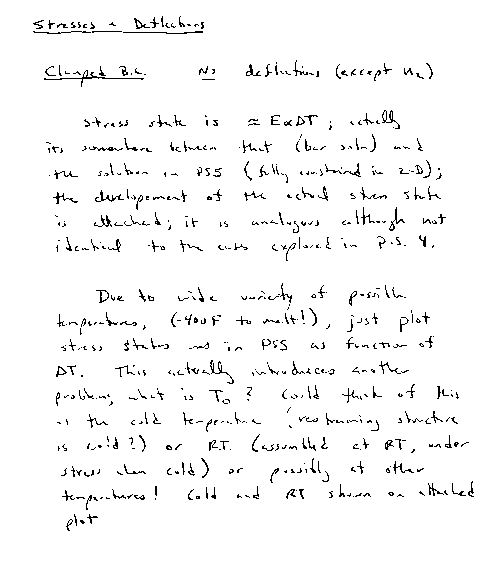 Stresses + Deflections
Clamped B.C. No deflections (except u_z)
Stress state is ≈ EαΔT; actually
its somewhere between that (bar soln) and
the solution in PS5 (fully constrained in 2-D);
the developement of the actual stress state
is attached; it is analogous although not
identical to the cases explored in P.S. 4.
Due to wide variety of possible
temperatures, (-400F to melt!), just plot
stress states as in PS5 as function of
ΔT. This actually introduces another
problem, what is T₀? Could think of this
as the cold temperature (restraining structure
is cold?) or RT (assembled at RT, under
stress when cold) or possibly at other
temperatures! Cold and RT shown on attached
plot